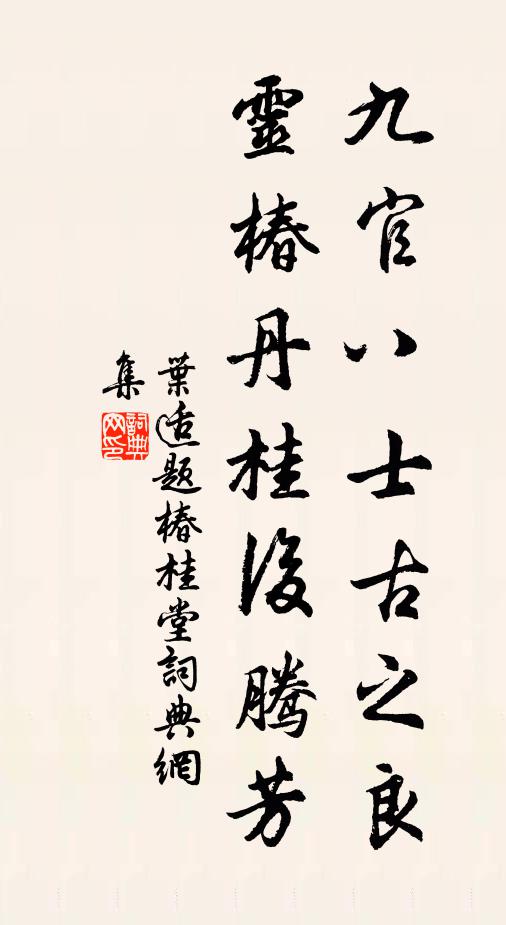 九官八士古之良
靈椿丹桂後騰芳
葉适題椿桂堂詞典網
集
詞典
网印